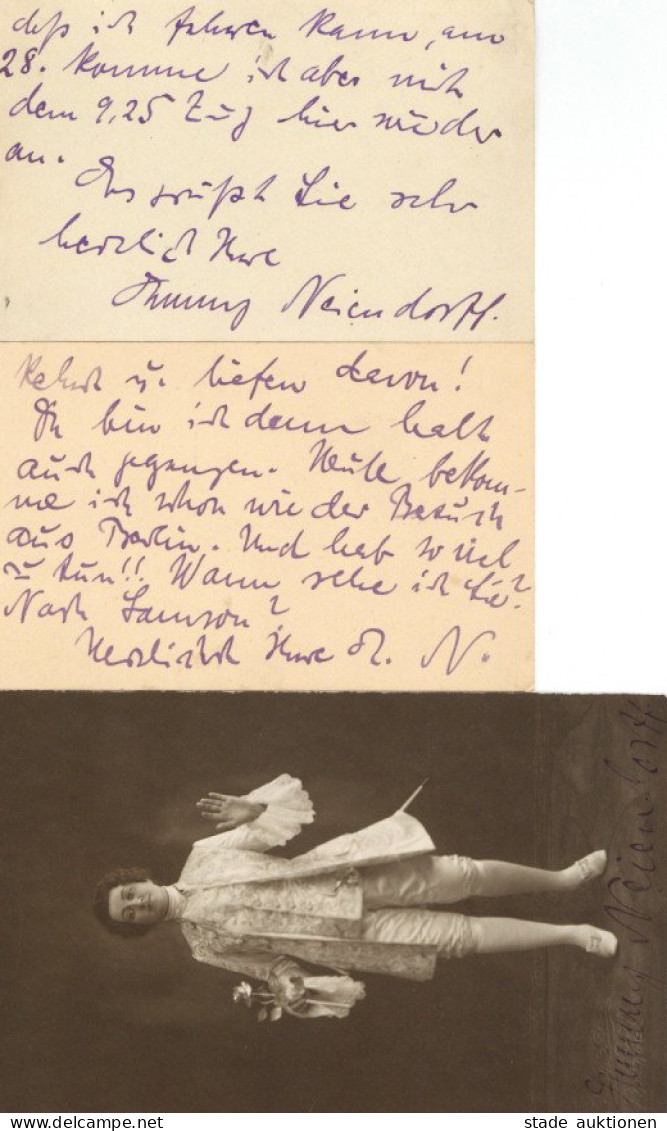 daß ich fahren kann, am
28. komme ich aber mit
dem 9,25 Zug hier wieder
an.
Es grüßt Sie sehr
herzlich Ihre
Emmy Neiendorff.
u. liefen davon!
Da bin ich dann halt
auch gegangen. Heute bekom-
me ich schon wieder Besuch
aus Berlin. Und hab so viel
zu tun!! Wann sehe ich Sie?
Nach Samson?
Herzlichst Ihre E. N.
Emmy Neiendorff
stade auktionen